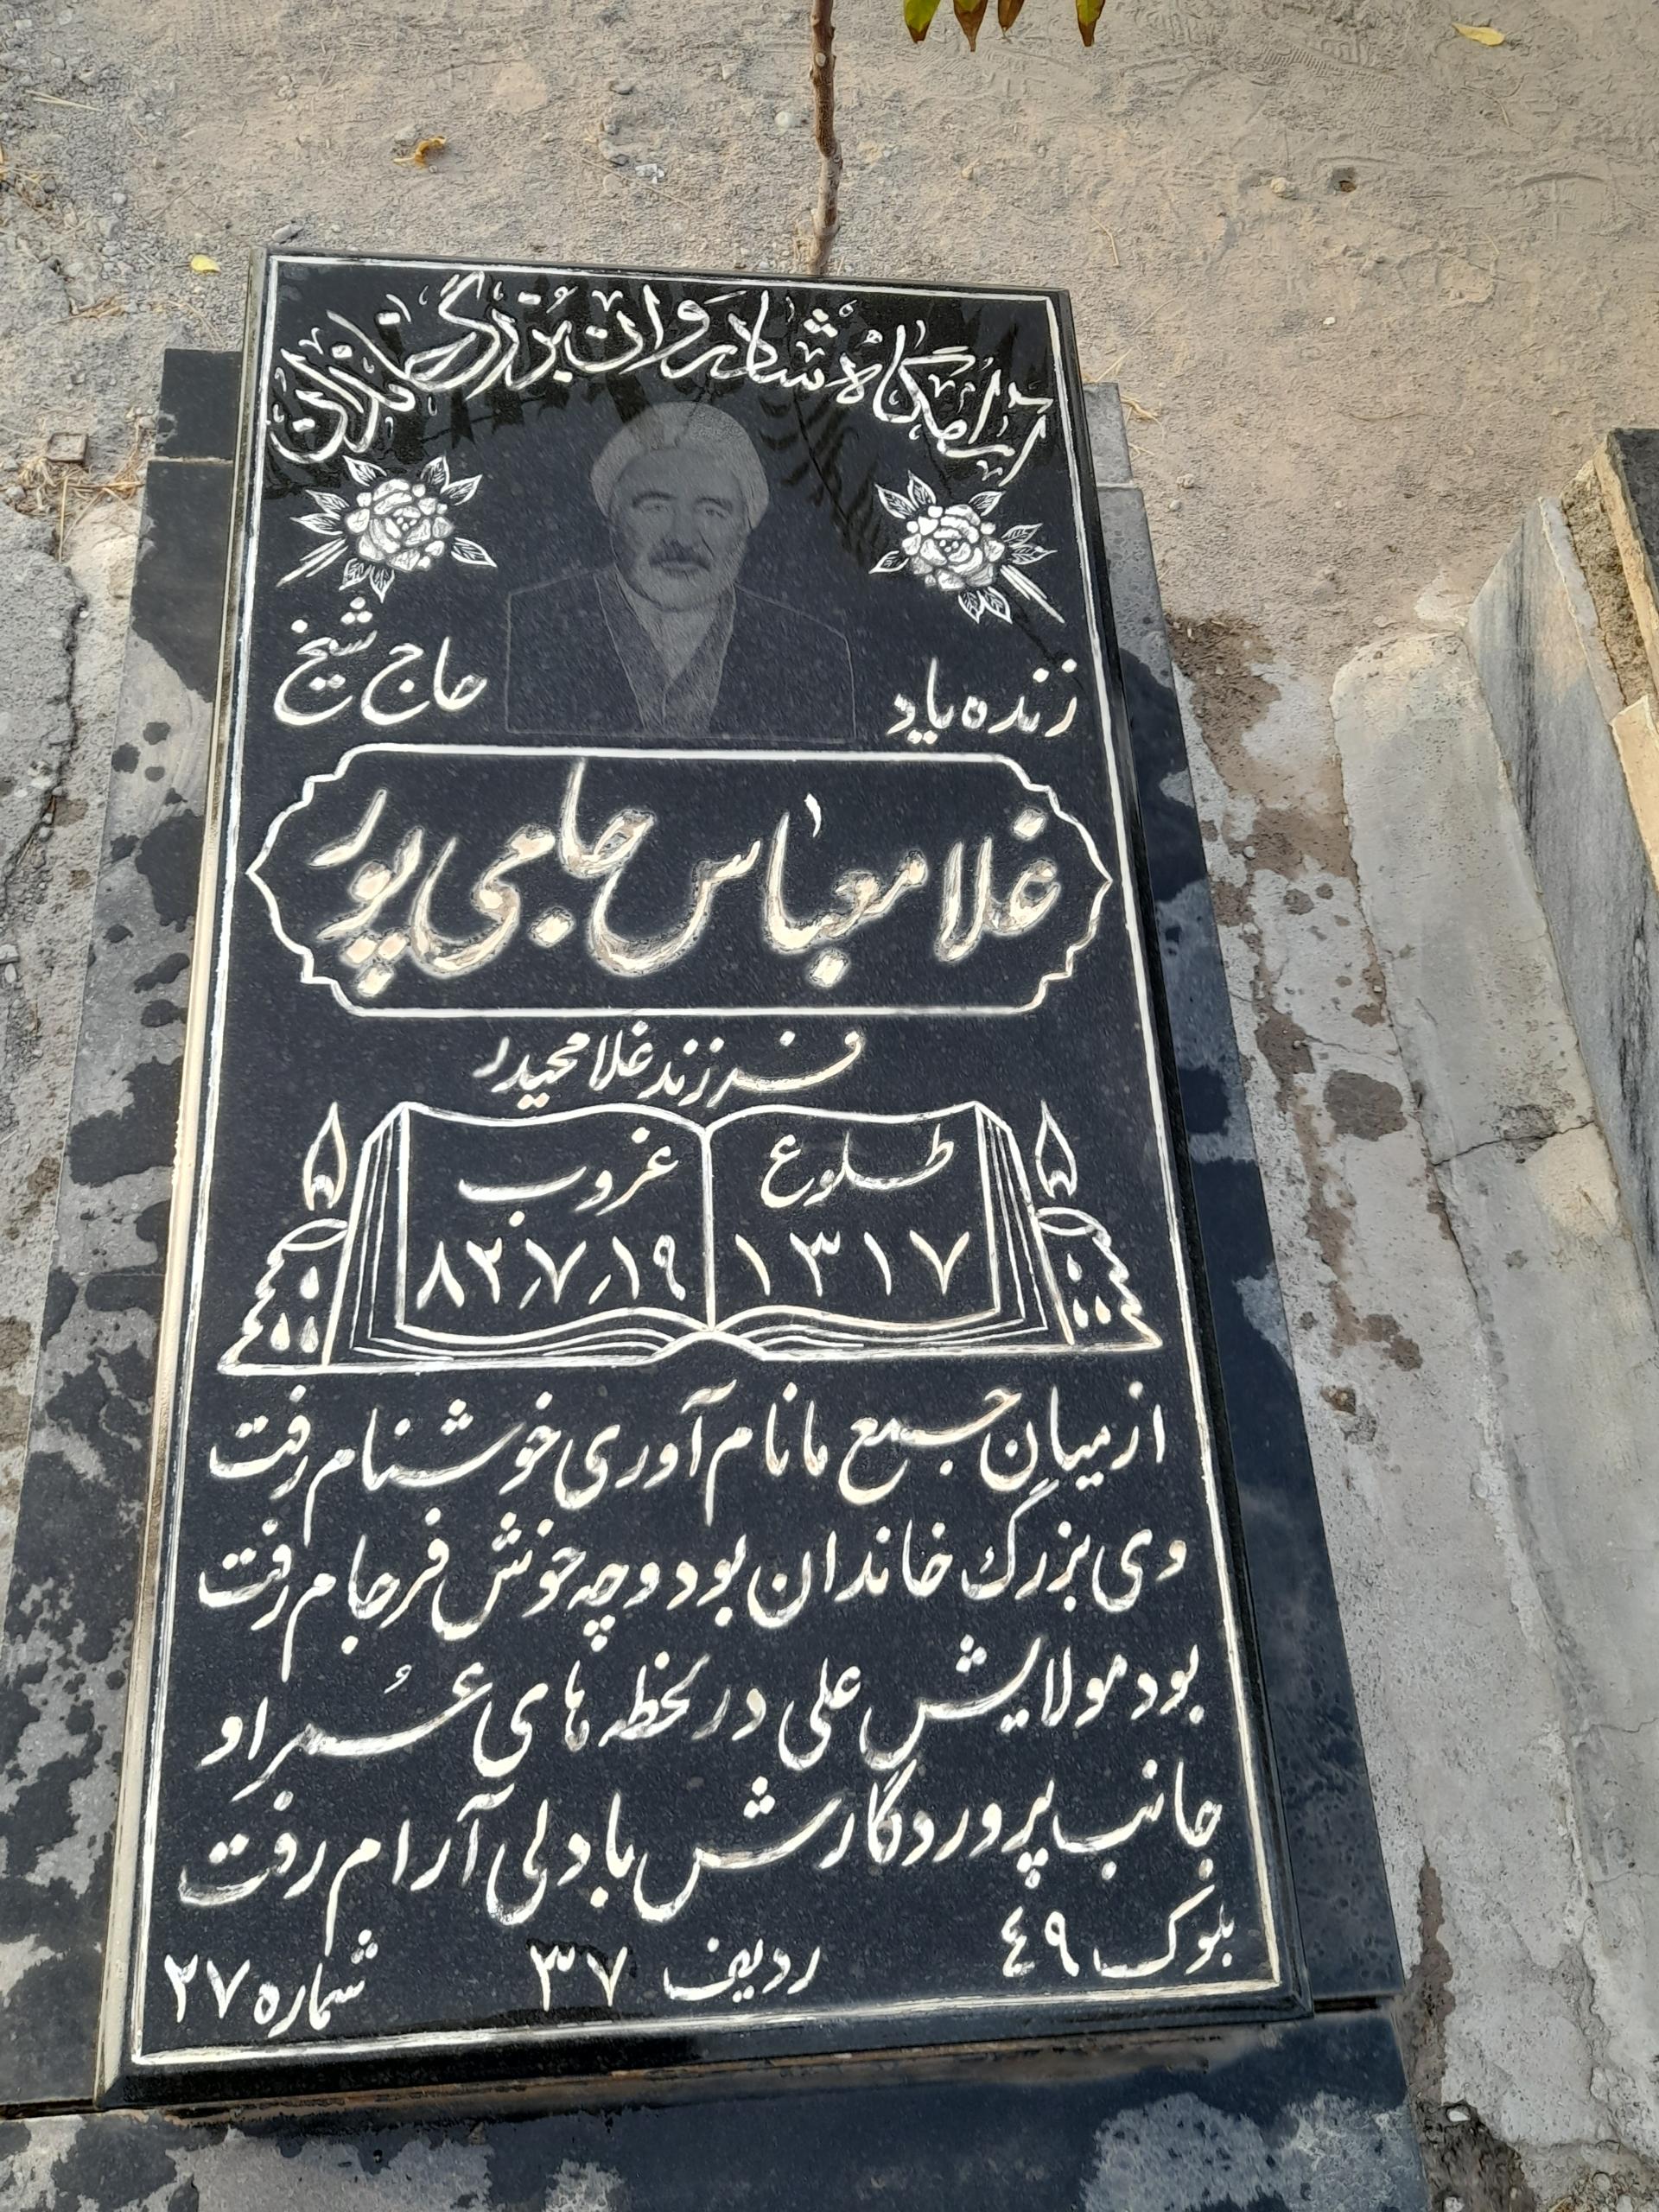 آرامگاه شادروان بُزرگ خاندان
زنده یاد
حاج شیخ
غلامعباس حاجی پور
فرزند غلامحیدر
طلوع
۱۳۱۷
غروب
۸۲٫۷٫۱۹
از میانِ جمع ما نام آوری خوشنام رفت
وی بزرگ خاندان بود و چه خوش فرجام رفت
بود مولایش علی در لحظه های عُمر او
جانب پروردگارش با دلی آرام رفت
بلوک ٤۹ ردیف ۳۷ شماره ۲۷